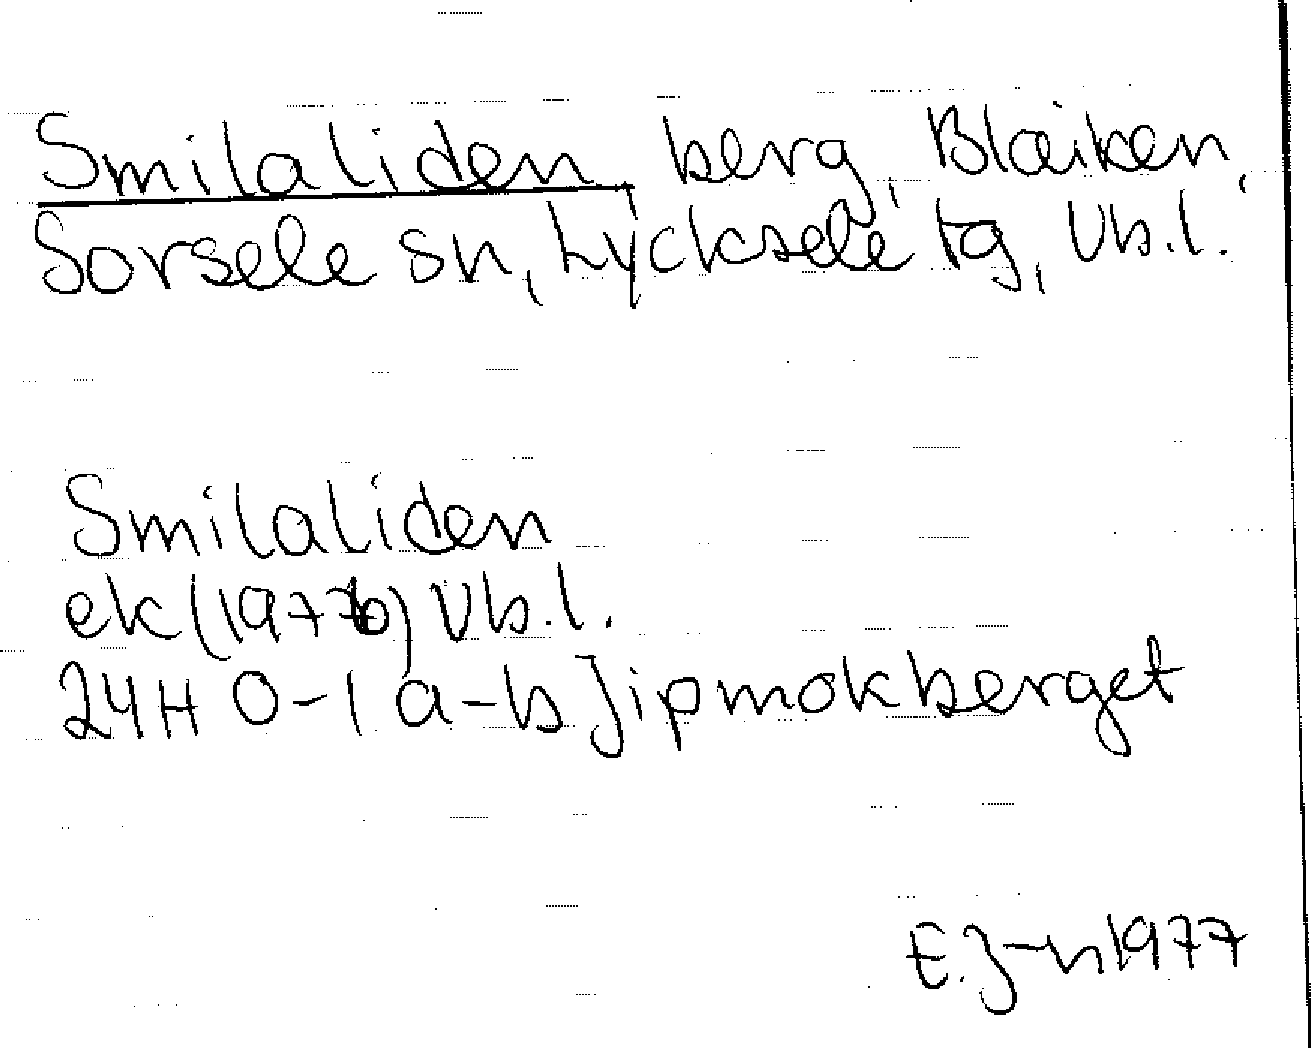 Smilaliden, berg, Blaiken,
Sorsele sn, Lycksele tg, Vb.l.
Smilaliden
ek (1976) Vb.l.
24H 0-1 a-b Jipmokberget
E. J-n 1977